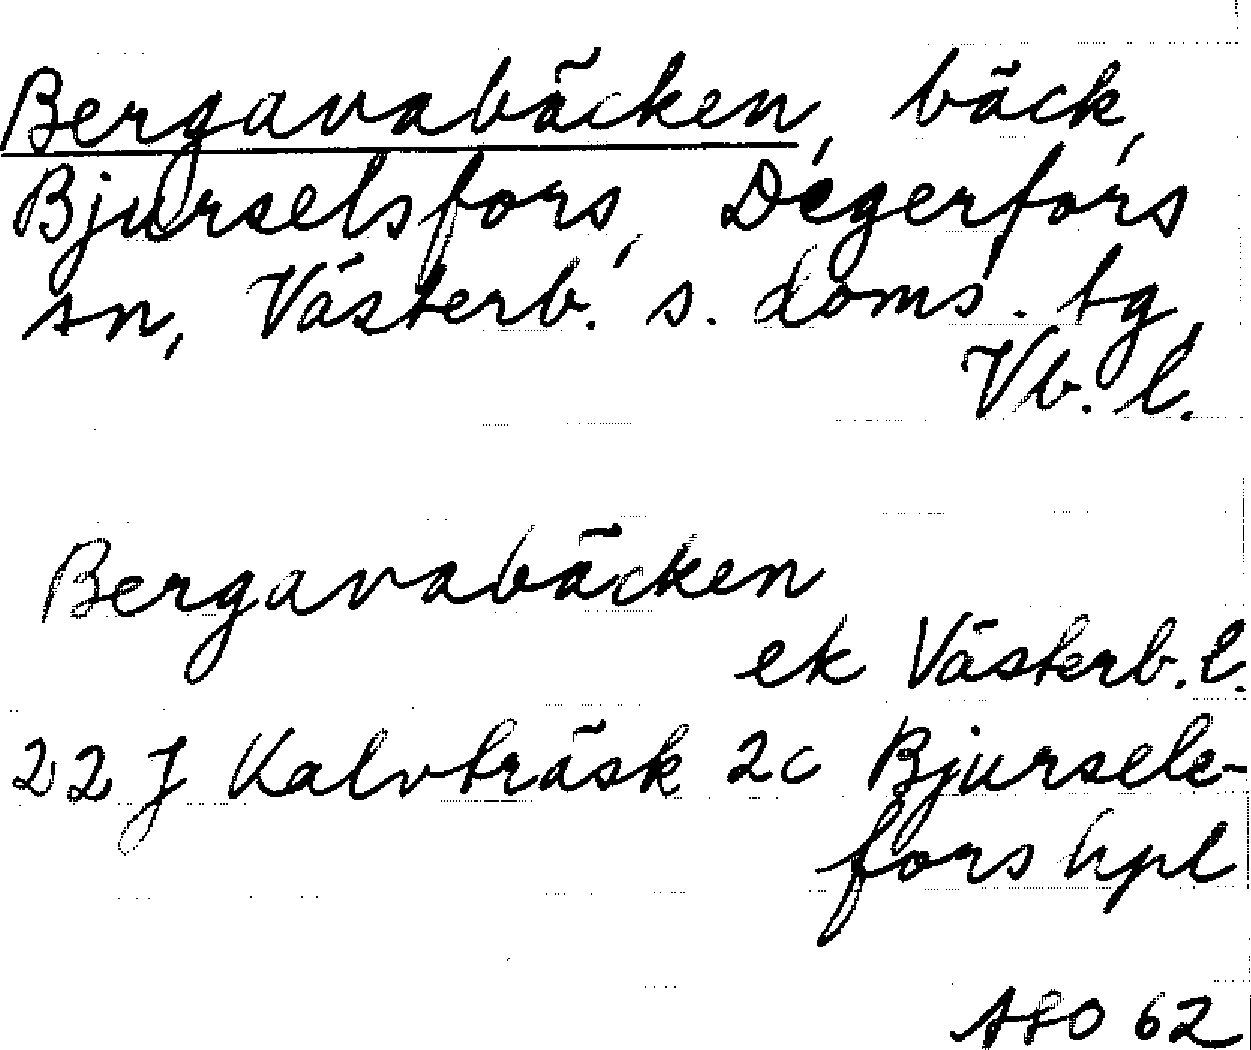 Bergavabäcken, bäck,
Bjurselsfors, Degerfors
sn, Västerb. s. doms. tg,
Vb. l.
Bergavabäcken
ek Västerb. l.
22 J Kalvträsk 2c Bjursele-
fors hpl
AFO 62